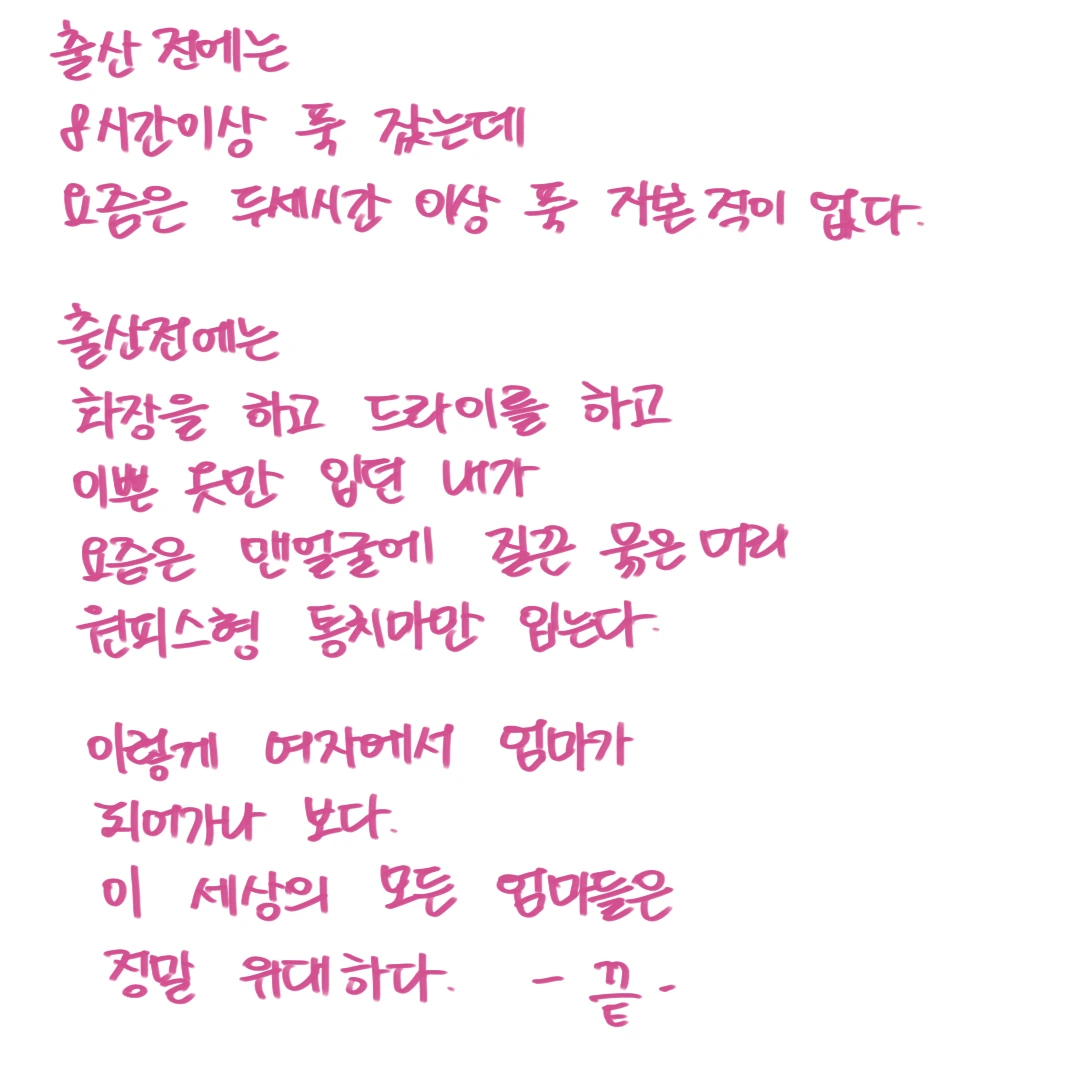 출산 전에는
8시간이상 푹 잤는데
요즘은 두세시간 이상 푹 자본 적이 없다.
출산전에는
화장을 하고 드라이를 하고
이쁜 옷만 입던 내가
요즘은 맨얼굴에 질끈 묶은 머리
원피스형 통치마만 입는다.
이렇게 여자에서 엄마가
되어가나 보다.
이 세상의 모든 엄마들은
정말 위대하다. - 끝 -